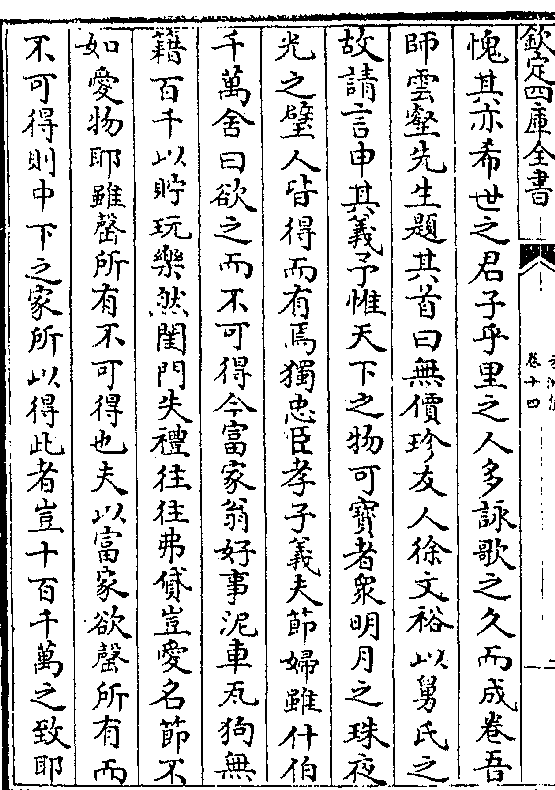 欽定四庫全書
卷十四
愧其亦希世之君子乎里之人多詠歌之久而成卷吾
師雲壑先生題其首曰無價珍友人徐文裕以舅氏之
故請言申其義予惟天下之物可寶者衆明月之珠夜
光之璧人皆得而有焉獨忠臣孝子義夫節婦雖什伯
千萬舍曰欲之而不可得今富家翁好事泥車瓦狗無
籍百千以貯玩樂然閨門失禮往往弗貸豈愛名節不
如愛物耶雖罄所有不可得也夫以富家欲罄所有而
不可得則中下之家所以得此者豈十百千萬之致耶